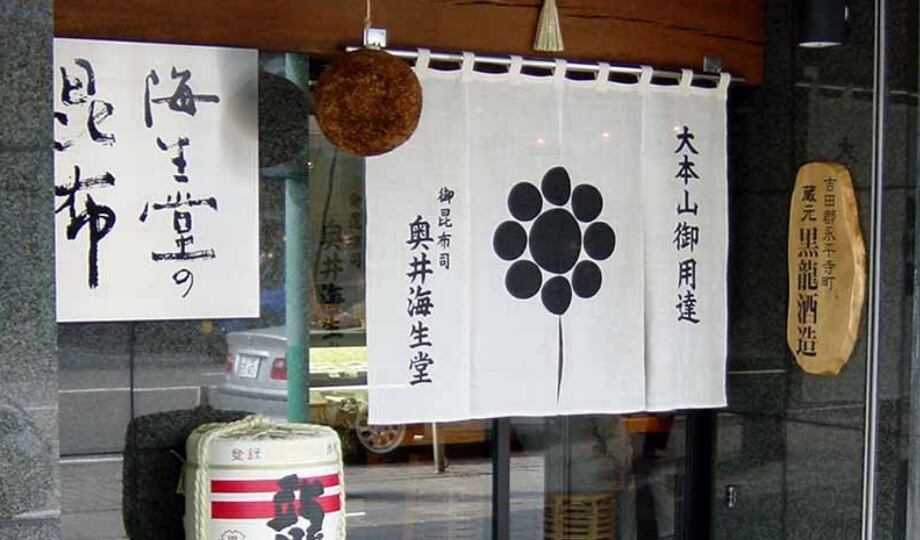 海生堂の
昆布
大本山御用達
御昆布司
奥井海生堂
吉田郡永平寺町
蔵元 黒龍酒造
登録